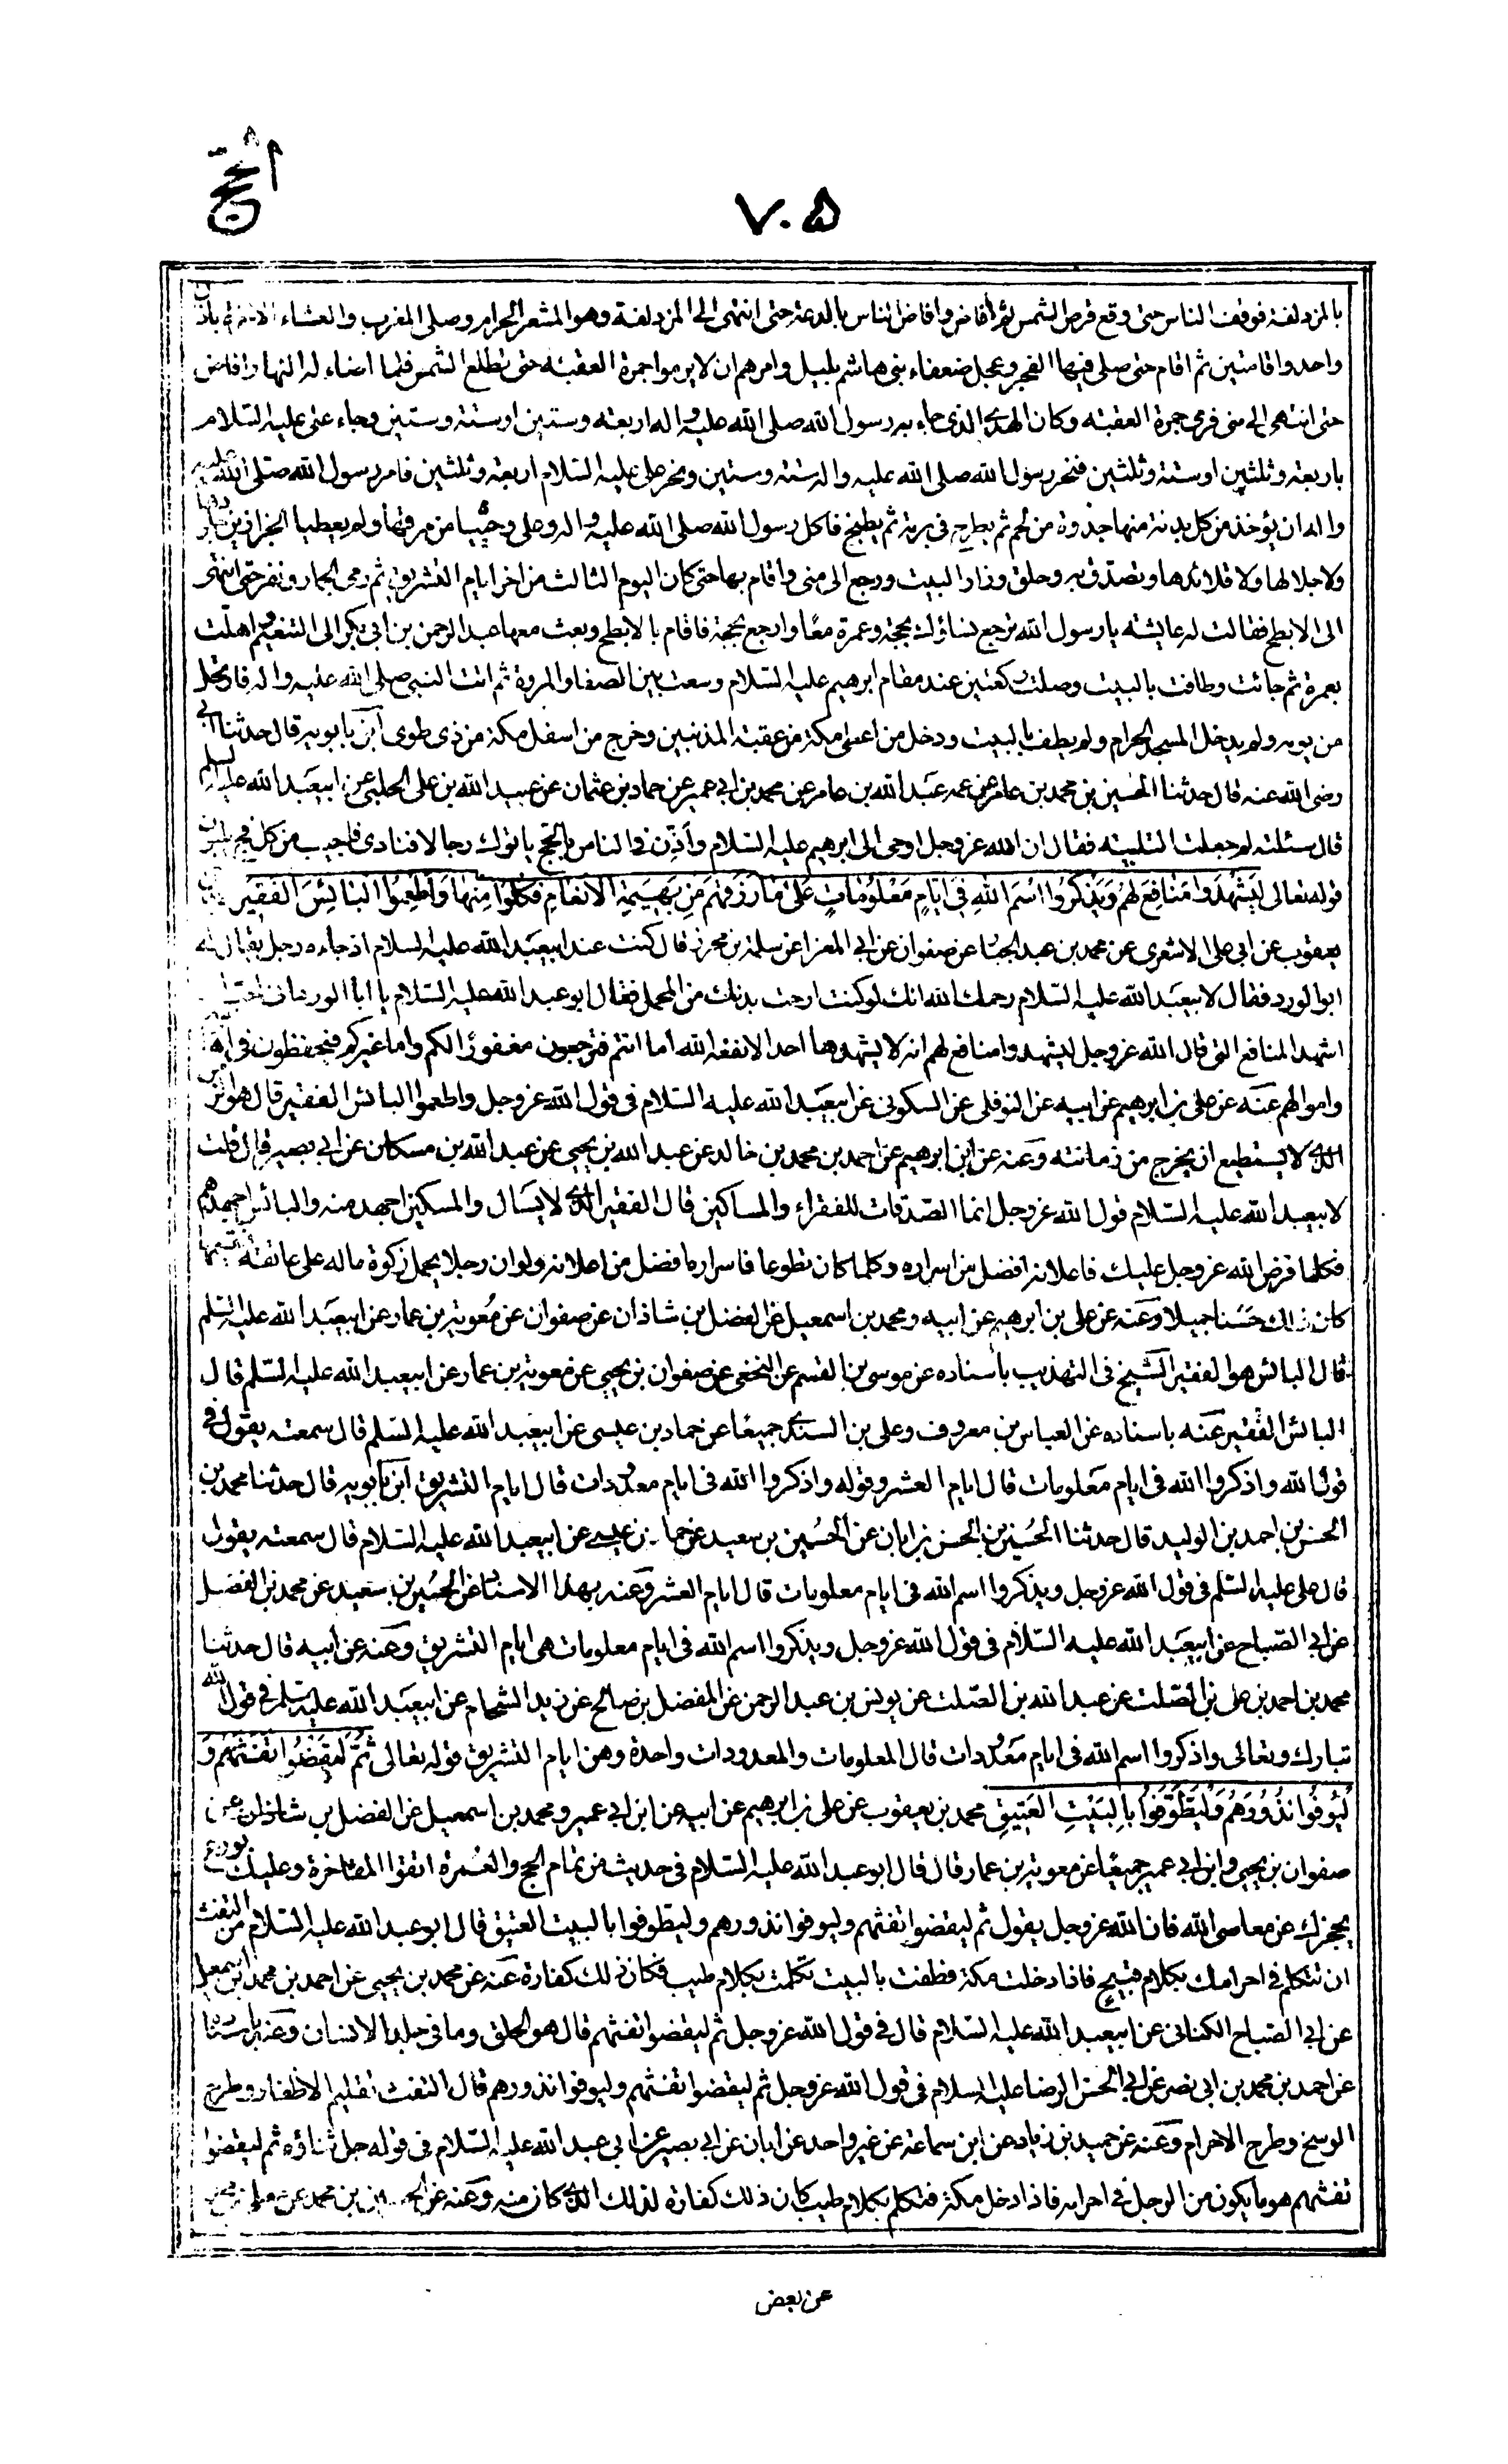 الحج
٧٠۵
بالمزدلفة فوقف الناس حتى وقع قرص الشمس ثم أفاض وافاض الناس بالدعة حتى انتهى الى المزدلفة وهو المشعر الحرام وصلى المغرب والعشاء الاخرة باذان
واحد واقامتين ثم اقام حتى صلى فيها الفجر وعجل ضعفاء بنى هاشم بليل وامرهم ان لا يرموا جمرة العقبة حتى تطلع الشمس فلما اضاء له النهار افاض
حتى انتهى الى منى فرمى جمرة العقبة وكان الهدى الذى جاء به رسول الله صلى الله عليه واله اربعة وستين اوستة وستين وجاء على عليه السلام
باربعة وثلثين اوستة وثلثين فنحر رسول الله صلى الله عليه واله ستة وستين ونحر على عليه السلام اربعة وثلثين فامر رسول الله صلى الله عليه
واله ان يؤخذ من كل بدنة منها جذوة من لحم ثم يطرح فى برمة ثم يطبخ فاكل رسول الله صلى الله عليه واله وعلى وحسيا من مرقها ولم يعطيا الجزارين جلودها
ولا جلالها ولا قلائدها وتصدق به وحلق وزار البيت ورجع الى منى واقام بها حتى كان اليوم الثالث من اخر ايام التشريق ثم رمى الجمار ونفر حتى انتهى
الى الابطح فقالت له عايشة يا رسول الله ترجع نساؤك بحجة وعمرة معًا وارجع بحجة فاقام بالابطح وبعث معها عبد الرحمن بن ابى بكر الى التنعيم فاهلت
بعمرة ثم جائت وطافت بالبيت وصلت ركعتين عند مقام ابرهيم عليه السلام وسعت بين الصفا والمروة ثم اتت النبى صلى الله عليه واله فارتحل
من يومه ولم يدخل المسجد الحرام ولم يطف بالبيت ودخل من اعلى مكة من عقبة المدنيين وخرج من اسفل مكة من ذى طوى ابن بابويه قال حدثنا ابى
رضى الله عنه قال حدثنا الحسين بن محمد بن عامر عن عمه عبد الله بن عامر عن محمد بن ابى عمير عن حماد بن عثمان عن عبيد الله بن على الحلبى عن ابيعبد الله عليه السلم
قال سئلته لم جعلت التلبية فقال ان الله عز وجل اوحى الى ابرهيم عليه السلام وأذن فى الناس بالحج يأتوك رجالا فنادى فاجيب من كل فج يلبون
قوله تعالى لِيَشْهَدُوا مَنَافِعَ لَهُمْ وَيَذْكُرُوا اسْمَ اللهِ فِى اَيَّامٍ مَعْلُومَاتٍ عَلى مَا رَزَقَهُمْ مِنْ بَهِيمَةِ الاَنْعَامِ فَكُلُوا مِنْهَا وَأَطْعِمُوا البَائِسَ الفَقِيرَ
يعقوب عن ابى على الاشعرى عن محمد بن عبد الجبار عن صفوان عن ابى المغرا عن سلمة بن محرز قال كنت عند ابيعبد الله عليه السلام اذ جاءه رجل يقال له
ابو الورد فقال لابيعبد الله عليه السلام رحمك الله انك لو كنت ارحت بدنك من المحمل فقال ابو عبد الله عليه السلام يا ابا الورد انى احب ان
اشهد المنافع التى قال الله عز وجل ليشهدوا منافع لهم انه لا يشهدها احد الا نفعه الله اما انتم فترجعون مغفورًا لكم واما غيركم فيحفظون فى اهاليهم
واموالهم عنه عن على بن ابرهيم عن ابيه عن النوفلى عن السكونى عن ابيعبد الله عليه السلام فى قول الله عز وجل واطعموا البائس الفقير قال هو الزمن
الذى لا يستطيع ان يخرج من زمانته وعنه عن ابن ابرهيم عن احمد بن محمد بن خالد عن عبد الله بن يحيى عن عبد الله بن مسكان عن ابى بصير قال قلت
لابيعبد الله عليه السلام قول الله عز وجل انما الصدقات للفقراء والمساكين قال الفقير الذى لا يسال والمسكين اجهد منه والبائس اجهدهم
فكلما فرض الله عز وجل عليك فاعلانه افضل من اسراره وكلما كان تطوعا فاسراره افضل من اعلانه ولو ان رجلا يحمل زكوة ماله على عاتقه فقسمها
كان ذلك حَسَنا جميلا وعنه عن على بن ابرهيم عن ابيه ومحمد بن اسمعيل عن الفضل بن شاذان عن صفوان عن معوية بن عمار عن ابيعبد الله عليه السلم
قال البائس هو الفقير الشيخ فى التهذيب بأسناده عن موسى بن القسم عن النخعى عن صفوان بن يحيى عن معوية بن عمار عن ابيعبد الله عليه السلم قال
البائس الفقير عنه باسناده عن العباس بن معروف وعلى بن السندى جميعًا عن حماد بن عيسى عن ابيعبد الله عليه السلم قال سمعته يقول فى
قول الله واذكروا الله فى ايام معلومات قال ايام العشر وقوله واذكروا الله فى ايام معدودات قال ايام التشريق ابن بابويه قال حدثنا محمد بن
الحسن بن احمد بن الوليد قال حدثنا الحسين بن الحسن بن ابان عن الحسين بن سعيد عن حماد بن عيسى عن ابيعبد الله عليه السلام قال سمعته يقول
قال على عليه السلم فى قول الله عز وجل ويذكروا اسم الله فى ايام معلومات قال ايام العشر وعنه بهذا الاسناد عن الحسين بن سعيد عن محمد بن الفضل
عن ابى الصباح عن ابيعبد الله عليه السلام فى قول الله عز وجل ويذكروا اسم الله فى ايام معلومات هى ايام التشريق وعنه عن ابيه قال حدثنا
محمد بن احمد بن على بن الصلت عن عبد الله بن الصلت عن يونس بن عبد الرحمن عن المفضل بن صالح عن زيد الشحام عن ابيعبد الله عليه السلم فى قول الله
تبارك وتعالى واذكروا اسم الله فى ايام معدودات قال المعلومات والمعدودات واحدة وهن ايام التشريق قوله تعالى ثُمَّ لْيَقْضُوا تَفَثَهُمْ وَ
لْيُوفُوا نُذُورَهُمْ وَلْيَطَّوَّفُوا بِالْبَيْتِ العَتِيقِ محمد بن يعقوب عن على بن ابرهيم عن ابيه عن ابن ابى عمير ومحمد بن اسمعيل عن الفضل بن شاذان عن
صفوان بن يحيى وابن ابى عمير جميعًا عن معوية بن عمار قال قال ابو عبد الله عليه السلام فى حديث من تمام الحج والعمرة اتقوا المفاخرة وعليك بورع
يحجزك عن معاصى الله فان الله عز وجل يقول ثم ليقضوا تفثهم وليوفوا نذورهم وليطوفوا بالبيت العتيق قال ابو عبد الله عليه السلام من التفث
ان تتكلم فى احرامك بكلام قبيح فاذا دخلت مكة وطفت بالبيت تكلمت بكلام طيب فكان ذلك كفارة عنه عن محمد بن يحيى عن احمد بن محمد بن اسمعيل
عن ابى الصباح الكنانى عن ابيعبد الله عليه السلام قال فى قول الله عز وجل ثم ليقضوا تفثهم قال هو الحلق وما فى جلد الانسان وعنه باسناده
عن احمد بن محمد بن ابى نصر عن ابى الحسن الرضا عليه السلام فى قول الله عز وجل ثم ليقضوا تفثهم وليوفوا نذورهم قال التفث تقليم الاظفار وطرح
الوسخ وطرح الاحرام وعنه عن حميد بن زياد عن ابن سماعة عن غير واحد عن ابان عن ابى بصير عن ابى عبد الله عليه السلام فى قوله جل ثناؤه ثم ليقضوا
تفثهم هو ما يكون من الرجل فى احرامه فاذا دخل مكة فتكلم بكلام طيب كان ذلك كفارة لذلك الذى كان منه وعنه عن الحسين بن محمد عن معلى بن محمد
عن بعض